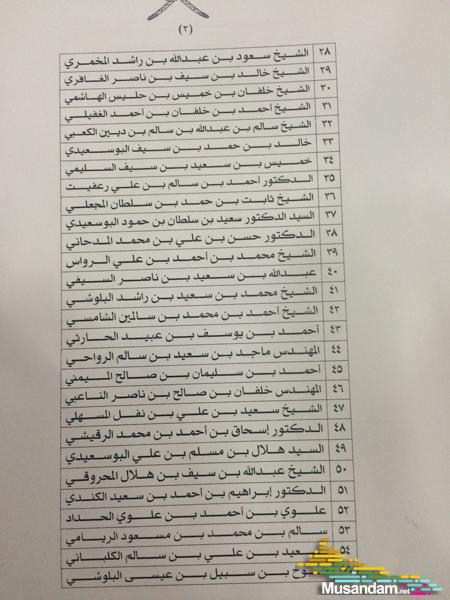 (٢)
٢٨ الشيخ سعود بن عبدالله بن راشد المخمري
٢٩ الشيخ خالد بن سيف بن ناصر الغافري
٣٠ الشيخ خلفان بن خميس بن حليس الهاشمي
٣١ الشيخ أحمد بن خلفان بن أحمد الغفيلي
٣٢ الشيخ سالم بن عبدالله بن سالم بن ديين الكعبي
٣٣ خالد بن حمد بن سيف البوسعيدي
٣٤ خميس بن سعيد بن سيف السليمي
٣٥ الدكتور أحمد بن سالم بن علي رعفيت
٣٦ الشيخ ثابت بن حمد بن سلطان المجعلي
٣٧ السيد الدكتور سعيد بن سلطان بن حمود البوسعيدي
٣٨ الدكتور حسن بن علي بن محمد المدحاني
٣٩ الشيخ محمد بن أحمد بن علي الرواس
٤٠ عبدالله بن سعيد بن ناصر السيفي
٤١ الشيخ محمد بن سعيد بن راشد البلوشي
٤٢ الشيخ أحمد بن محمد بن سالمين الشامسي
٤٣ أحمد بن يوسف بن عبيد الحارثي
٤٤ المهندس ماجد بن سعيد بن سالم الرواحي
٤٥ أحمد بن سليمان بن صالح الميمني
٤٦ المهندس خلفان بن صالح بن ناصر الناعبي
٤٧ الشيخ سعيد بن علي بن نفل المسهلي
٤٨ الدكتور إسحاق بن أحمد بن محمد الرقيشي
٤٩ السيد هلال بن مسلم بن علي البوسعيدي
٥٠ الشيخ عبدالله بن سيف بن هلال المحروقي
٥١ الدكتور إبراهيم بن أحمد بن سعيد الكندي
٥٢ علوي بن أحمد بن علوي الحداد
٥٣ سالم بن محمد بن مسعود الريامي
٥٤ سعيد بن علي بن سالم الكلباني
بن سبيل بن عيسى البلوشي
Musandam.net